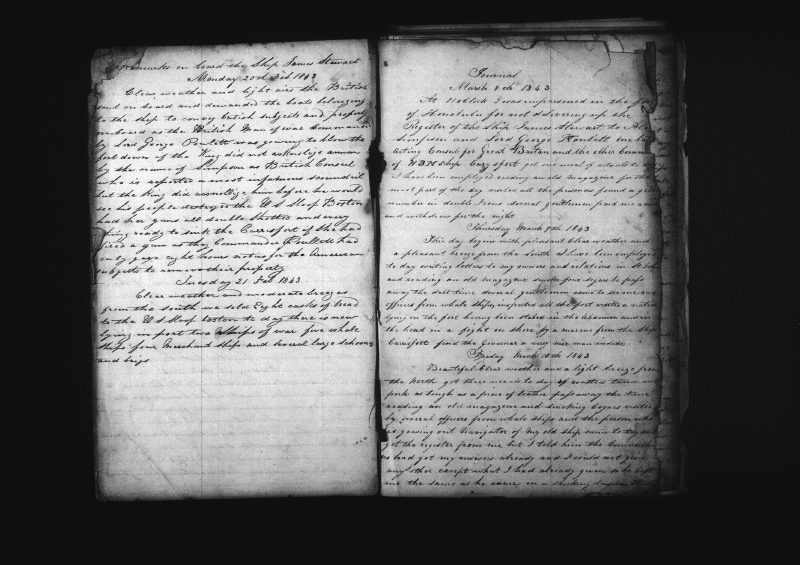 Remarks on board the Ship James Stewart
Monday 20th Feb 1843
Clear weather and light airs the British
and on board and demanded the boats belonging
to the ship to convey british subjects and property
onboard as the British Man of war Commanded
by Lord George Paulett was going to blow the
fort down if the King did not acknowledge a man
by the name of Simpson as British Consul
who is reported a most infamous scoundril
but the King did acknowledge him before he would
see his people destroyed the U S Sloop Boston
had her guns all double shotted and every
thing ready to sink the Carrisfort if she had
fired a gun as they Commander Paulett had
only gave eight hours notice for the American
subjects to remove their property
Tuesday 21 Feb 1843
Clear weather and moderate breezes
from the South sold Eight casks of bread
to the U S Sloop boston to day there is now
lying in port two Ships of war five whale
ships four Merchant ships and several large schooners
and brigs
Journal
March 8th 1843
At I was imprisoned in the
of Honolulu for not delivering up the
Register of the Ship James Stewart to
Simpson and Lord George Paulett
acting Consul for Great Britan and the other Comma
of H B M Ship Carysfort got
I have been employed reading an old magazene for the
most part of the day visited all the prisoners found a great
number in double Irons several gentlemen paid me a
and withdrew for the night
Thursday March 9th 1843
This day begins with pleasant Clear weather and
a pleasant breeze from the South as have been employed
to day writing letters to my owners and relations in
and reading an old magazene smoke five segars to pass
away the dull time several gentlemen came to see me and
officers from whale ships inspected all the fort visited a native
lying in the fort having been stabed in the abdomen and in
the head in a fight on shore by a marine from the Ship
Carrisfort find the Govenor a very nice man inside
Friday March 10th 1843
Beautifull Clear weather and a light breeze from
the North got three meals to day of
pork as tough as a peice of leather pass away the time
reading an old magazene and smoking cegars visited
by several officers from whale ships and the person who
is gowing out Navigator of my old ship came to try and
get the register from me but I told him the Commander
had got my answer already and I could not give
any other except what I had already given so he left
me the same as he came, in a